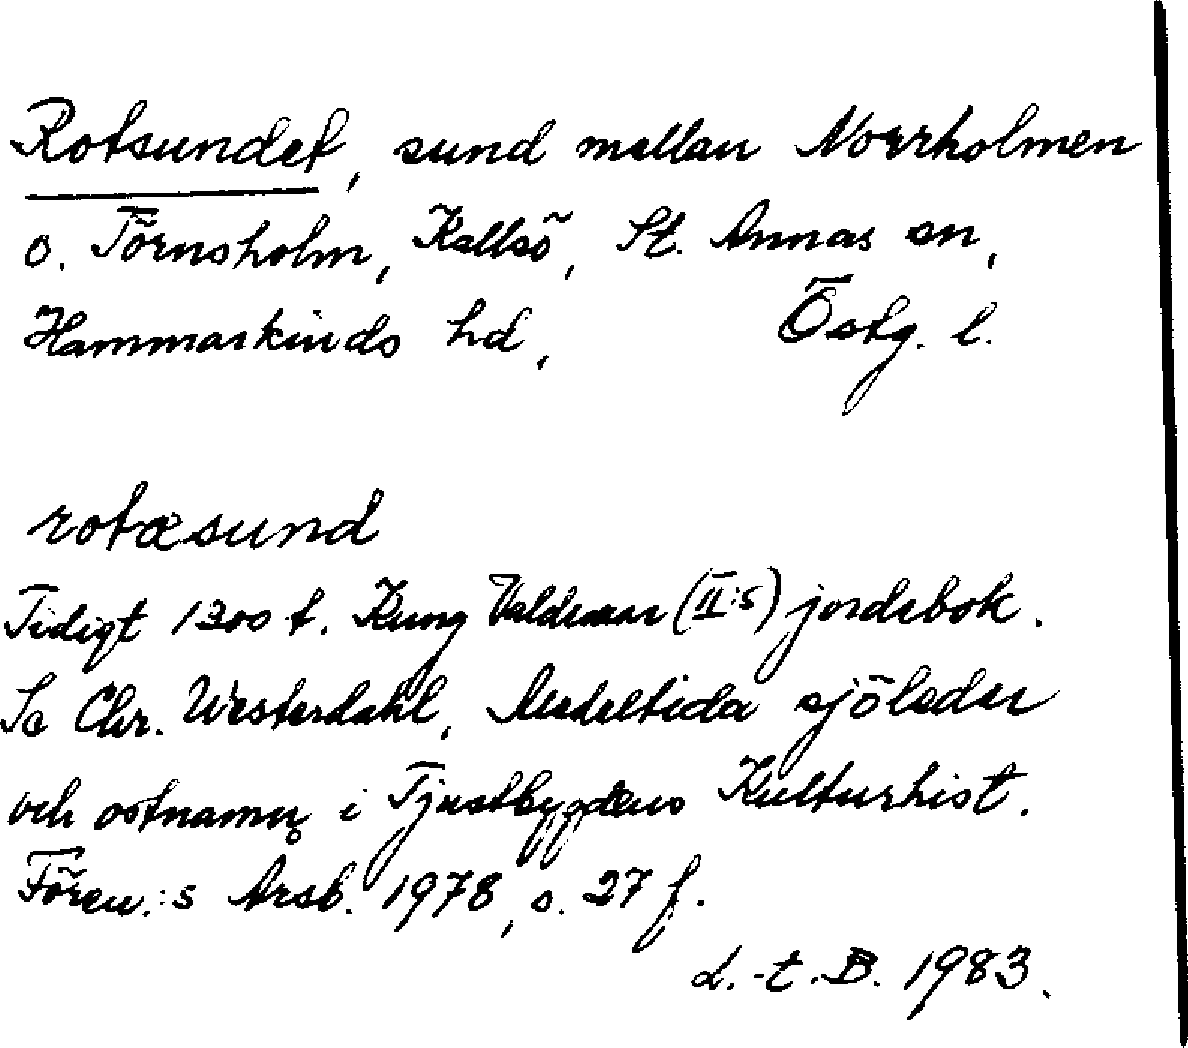 Rotsundet, sund mellan Norrholmen
o. Törnsholm, Kallsö, St. Annas sn,
Hammarkinds hd, Östg. l.
rotæsund
Tidigt 1300 t. Kung Valdemar (II:s) jordebok.
Se Chr. Westerdahl, Medeltida sjöleder
och ortnamn i Tjustbygdens Kulturhist.
Fören.:s Årsb. 1978, s. 27 f.
L.-t. B. 1983.